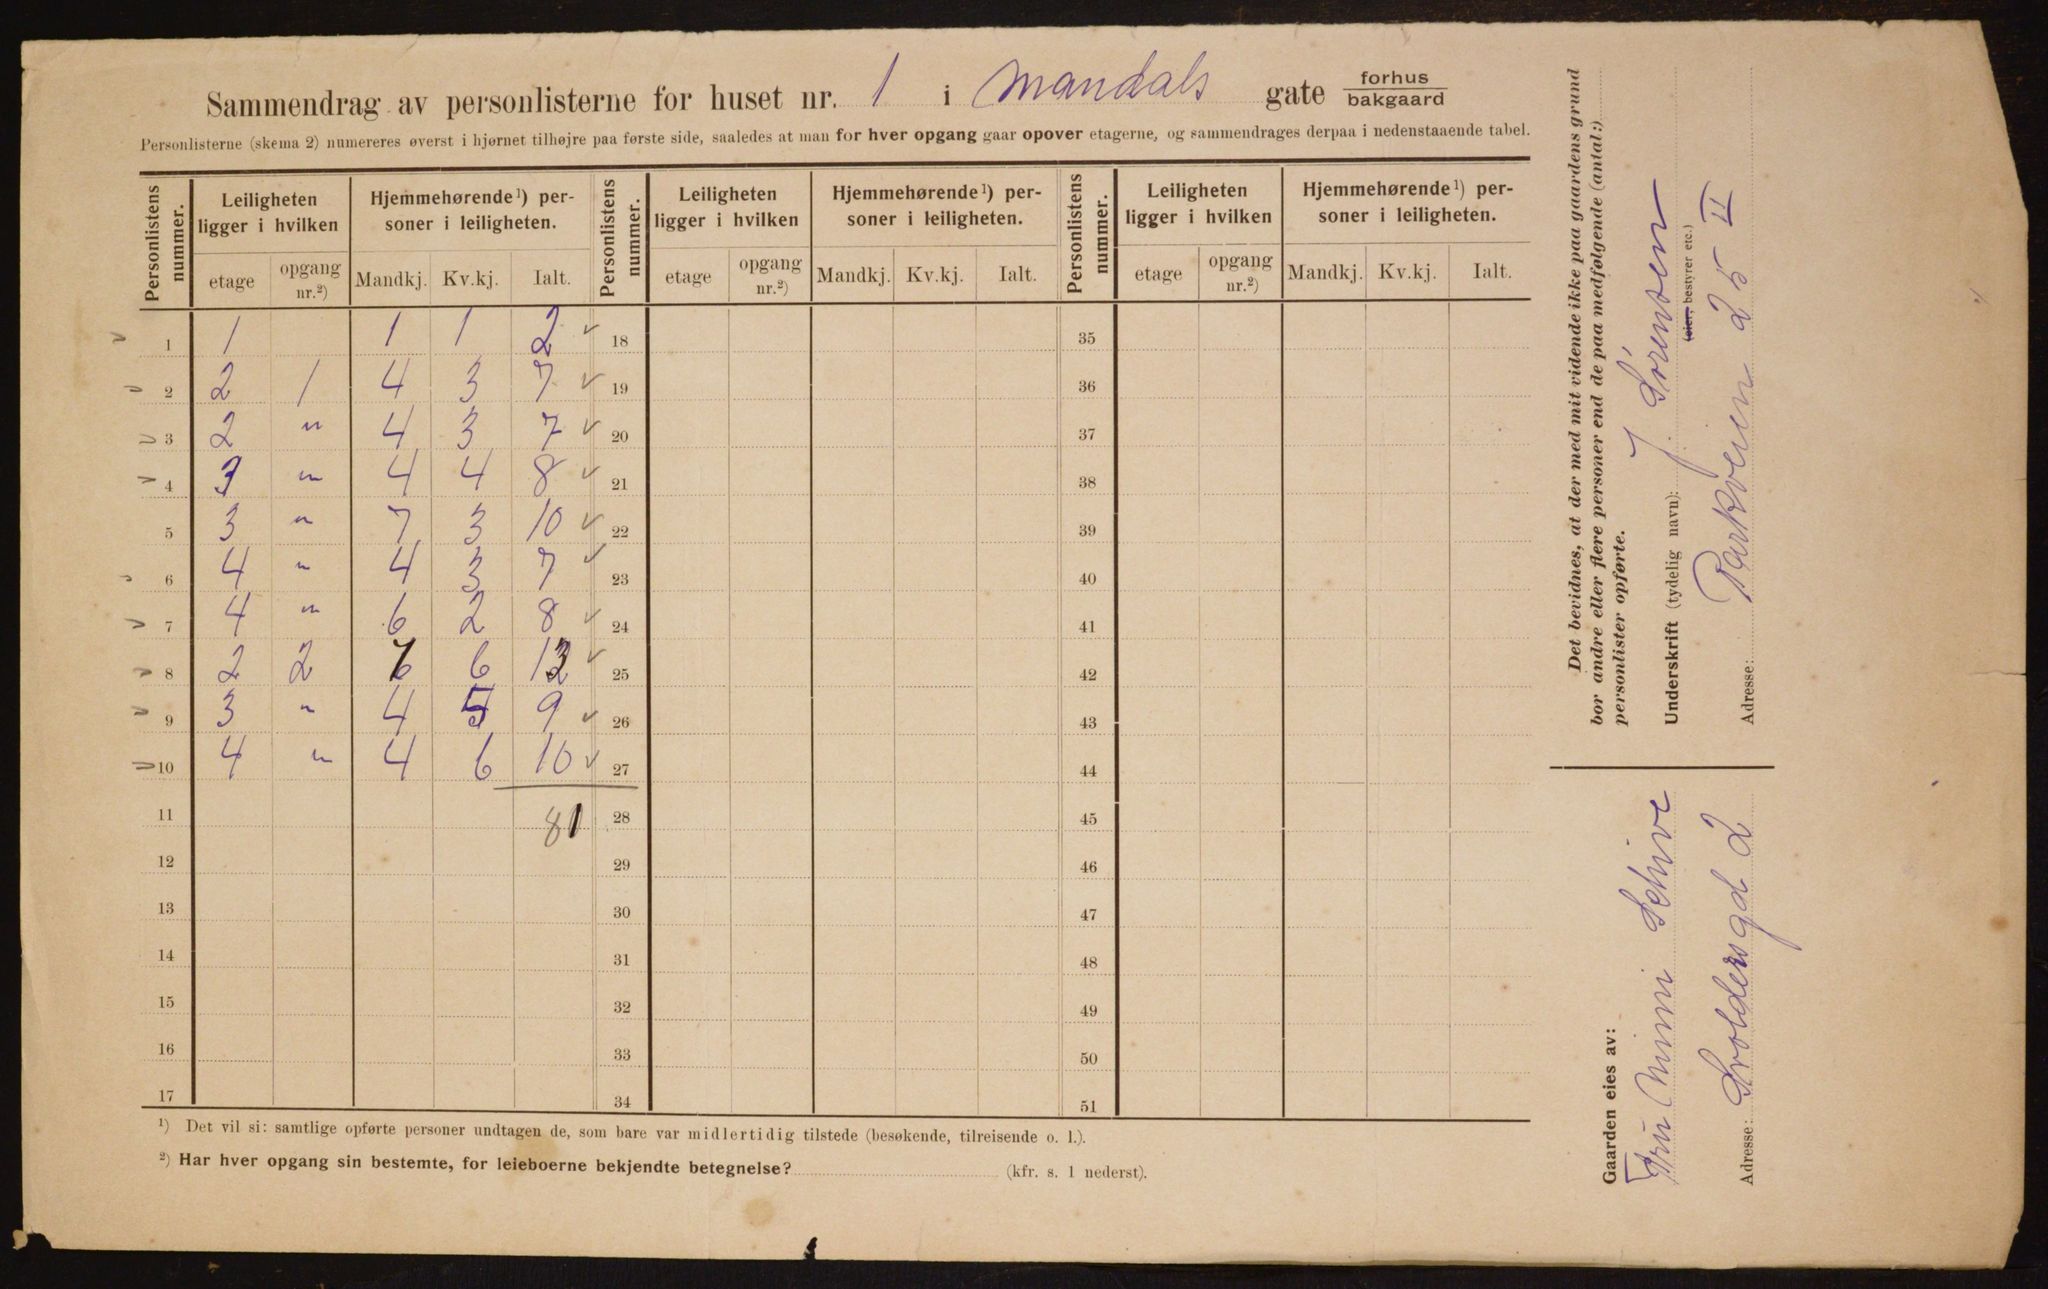 Sammendrag av personlisterne for huset nr. 1 i Mandals gate forhus
bakgaard
Personlisterne (skema 2) numereres øverst i hjørnet tilhøjre paa første side, saaledes at man for hver opgang gaar opover etagerne, og sammendrages derpaa i nedenstaaende tabel.
Personlistens nummer. Leiligheten ligger i hvilken Hjemmehørende ¹) personer i leiligheten. Personlistens nummer. Leiligheten ligger i hvilken Hjemmehørende ¹) personer i leiligheten. Personlistens nummer. Leiligheten ligger i hvilken Hjemmehørende ¹) personer i leiligheten.
etage opgang nr.²) Mandkj. Kv.kj. Ialt. etage opgang nr.²) Mandkj. Kv.kj. Ialt. etage opgang nr.²) Mandkj. Kv.kj. Ialt.
1 1 1 1 2 ✓ 18 35
2 2 1 4 3 7 ✓ 19 36
3 2 " 4 3 7 ✓ 20 37
4 3 " 4 4 8 ✓ 21 38
5 3 " 7 3 10 ✓ 22 39
6 4 " 4 3 7 ✓ 23 40
7 4 " 6 2 8 ✓ 24 41
8 2 2 7 6 13 ✓ 25 42
9 3 " 4 5 9 ✓ 26 43
10 4 " 4 6 10 ✓ 27 44
11 81 28 45
12 29 46
13 30 47
14 31 48
15 32 49
16 33 50
17 34 51
¹) Det vil si: samtlige opførte personer undtagen de, som bare var midlertidig tilstede (besøkende, tilreisende o. l.).
²) Har hver opgang sin bestemte, for leieboerne bekjendte betegnelse? (kfr. s. 1 nederst).
Det bevidnes, at der med mit vidende ikke paa gaardens grund
bor andre eller flere personer end de paa medfølgende (antal:)
personlister opførte.
Underskrift (tydelig navn): J. Sørensen
(eier, bestyrer etc.)
Adresse: Parkveien 25 II
Gaarden eies av:
Fru Mimi Schive
Adresse: Svoldersgd 2